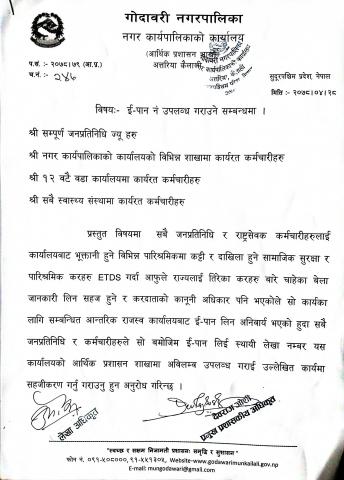 गोदावरी नगरपालिका
नगर कार्यपालिकाको कार्यालय
(आर्थिक प्रशासन शाखा)
अत्तरिया कैलाली
प.सं. :- २०७८/७९ (आ.प्र.)
च.नं. :- २४६
सुदूरपश्चिम प्रदेश, नेपाल
मिति :- २०७८/०४/२८
विषयः- ई-पान नं उपलब्ध गराउने सम्बन्धमा ।
श्री सम्पूर्ण जनप्रतिनिधि ज्यू हरु
श्री नगर कार्यपालिकाको कार्यालयको विभिन्न शाखामा कार्यरत कर्मचारीहरु
श्री १२ वटै वडा कार्यालयमा कार्यरत कर्मचारीहरु
श्री सबै स्वास्थ्य संस्थामा कार्यरत कर्मचारीहरु
प्रस्तुत विषयमा सबै जनप्रतिनिधि र राष्ट्रसेवक कर्मचारीहरुलाई
कार्यालयबाट भूक्तानी हुने विभिन्न पारिश्रमिकमा कट्टी र दाखिला हुने सामाजिक सुरक्षा र
पारिश्रमिक करहरु ETDS गर्दा आफुले राज्यलाई तिरेका करहरु बारे चाहेका बेला
जानकारी लिन सहज हुने र करदाताको कानूनी अधिकार पनि भएकोले सो कार्यका
लागि सम्बन्धित आन्तरिक राजस्व कार्यालयबाट ई-पान लिन अनिवार्य भएको हुदा सबै
जनप्रतिनिधि र कर्मचारीहरुले सो बमोजिम ई-पान लिई स्थायी लेखा नम्बर यस
कार्यालयको आर्थिक प्रशासन शाखामा अविलम्ब उपलब्ध गराई उल्लेखित कार्यमा
सहजीकरण गर्नु गराउनु हुन अनुरोध गरिन्छ ।
लेखा अधिकृत
देवराज जोशी
प्रमुख प्रशासकीय अधिकृत
"स्वच्छ र सक्षम निजामती प्रशासनः समृद्धि र सुशासन"
फोन नं. ०९१-५०८०००, ९१-५५१२०५, Website-www.godawarimunkailali.gov.np
E-mail: mungodawari@gmail.com